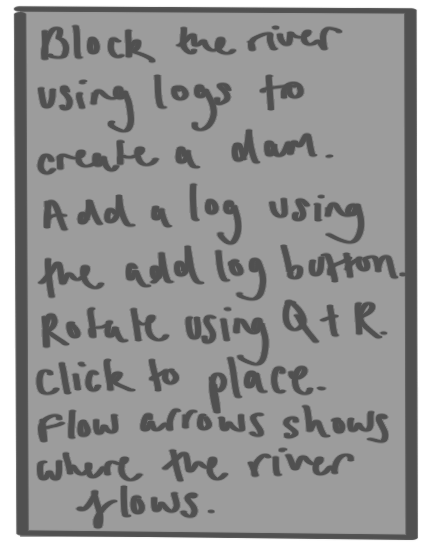 Block the river
using logs to
create a dam.
Add a log using
the add log button.
Rotate using Q + R.
Click to place.
Flow arrows shows
where the river
flows.